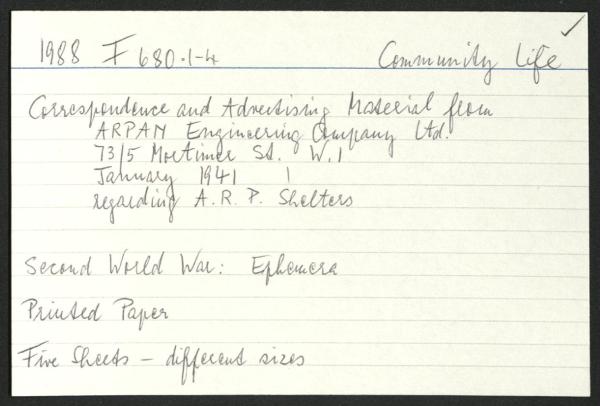 1988 F 680.1-4 Community Life
Correspondence and Advertising Material from
ARPAM Engineering Company Ltd.
73/5 Mortimer St. W.1
January 1941
regarding A.R.P. Shelters
Second World War: Ephemera
Printed Paper
Five Sheets – different sizes